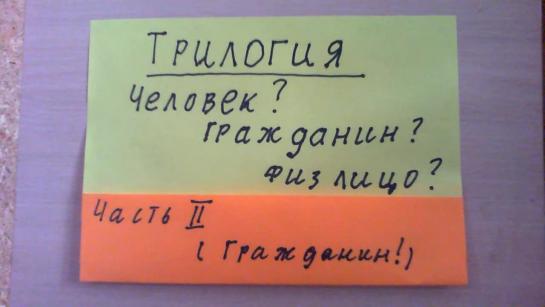 Трилогия
Человек?
Гражданин?
Физ лицо?
Часть II
( Гражданин!)